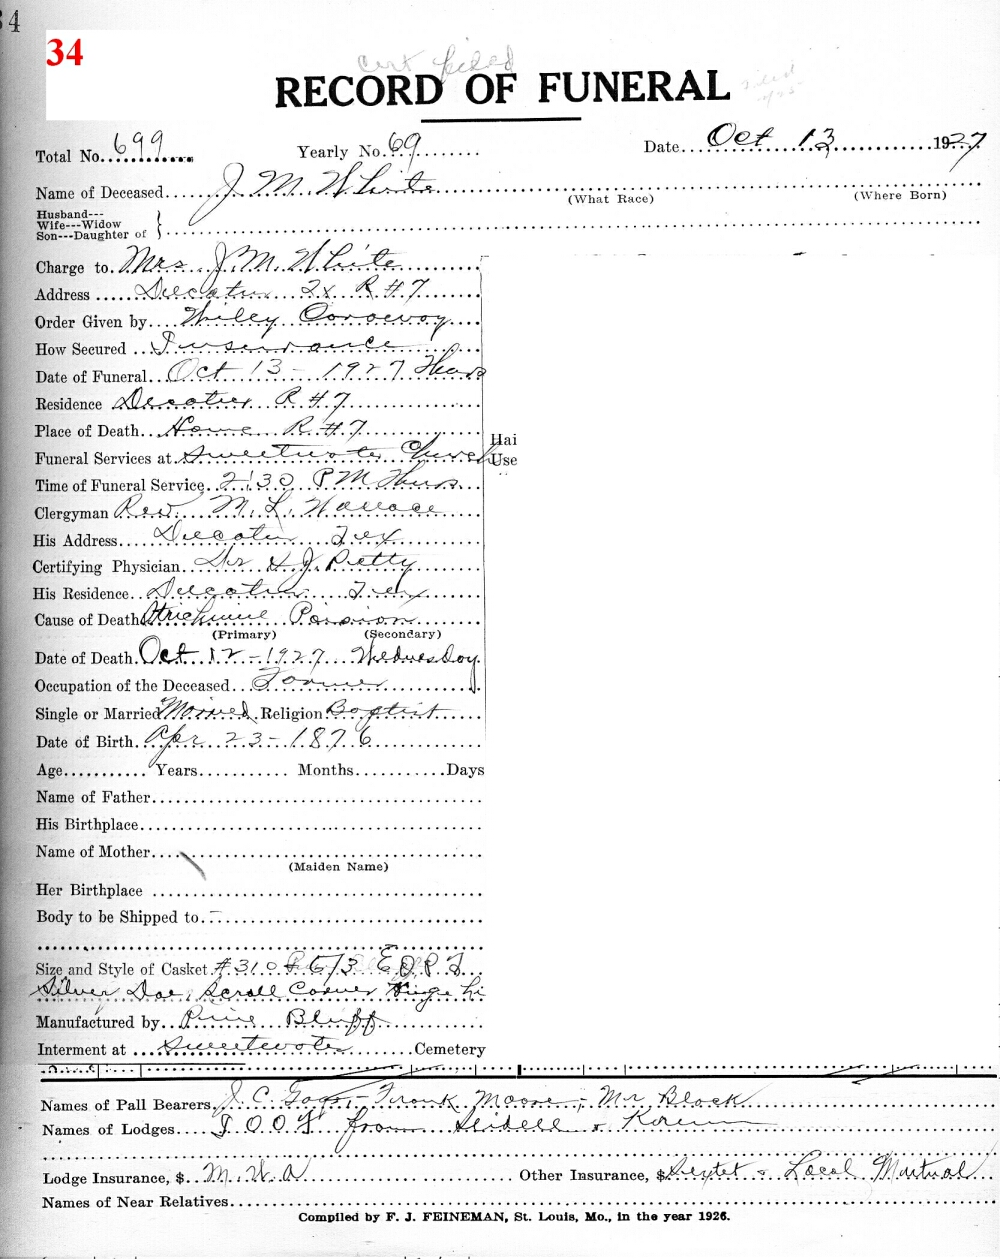 34
34
cert filed
RECORD OF FUNERAL
Total No. 699 Yearly No. 69 Date Oct 13 1927
Name of Deceased J. M. White (What Race) (Where Born)
Husband---
Wife---Widow
Son---Daughter of
Charge to. Mrs J. M. White
Address Decatur Tx R #7
Order Given by Wiley Conoway
How Secured Insurance
Date of Funeral Oct 13 - 1927 Thurs
Residence Decatur R #7
Place of Death Home R #7
Hai
Funeral Services at Sweetwater Church
Use
Time of Funeral Service 2:30 PM Thurs
Clergyman Rev M. L. Wallace
His Address Decatur Tex
Certifying Physician Dr H J Petty
His Residence Decatur Tex
Cause of Death Strichnine Poision
(Primary) (Secondary)
Date of Death Oct 12 - 1927 Wednesday
Occupation of the Deceased Farmer
Single or Married Married Religion Baptist
Date of Birth Apr 23 - 1876
Age Years Months Days
Name of Father
His Birthplace
Name of Mother
(Maiden Name)
Her Birthplace
Body to be Shipped to
Size and Style of Casket #310 6/3
Silver Doe Scroll Corner
Manufactured by Pine Bluff
Interment at Sweetwater Cemetery
Names of Pall Bearers J. C. - Frank Moore - Mr Black
Names of Lodges I O O F from Slidell &
Lodge Insurance, $ M. W. A Other Insurance, $ Local Mutual
Names of Near Relatives
Compiled by F. J. FEINEMAN, St. Louis, Mo., in the year 1926.